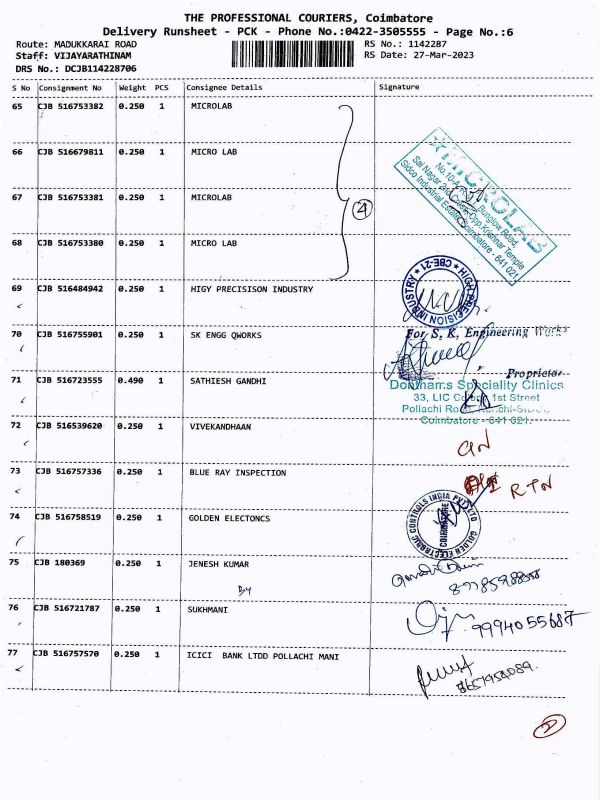 THE PROFESSIONAL COURIERS, Coimbatore
Delivery Runsheet - PCK - Phone No.:0422-3505555 - Page No.:6
Route: MADUKKARAI ROAD RS No.: 1142287
Staff: VIJAYARATHINAM RS Date: 27-Mar-2023
DRS No.: DCJB114228706
S No Consignment No Weight PCS Consignee Details Signature
65 CJB 516753382 0.250 1 MICROLAB
66 CJB 516679811 0.250 1 MICRO LAB
MICROLAB
No.10-A, Bunglow Road,
Sai Nagar 2nd Cross, Opp.Krishnar Temple
Sidco Industrial Estate, Coimbatore - 641 021
67 CJB 516753381 0.250 1 MICROLAB
4
68 CJB 516753380 0.250 1 MICRO LAB
69 CJB 516484942 0.250 1 HIGY PRECISISON INDUSTRY
HIGH PRECISION INDUSTRY * CBE-21 *
70 CJB 516755901 0.250 1 SK ENGG QWORKS
For S. K. Engineering Works
Proprietor
71 CJB 516723555 0.490 1 SATHIESH GANDHI
Speciality Clinics
33, LIC Colony 1st Street
Pollachi Road,
Coimbatore - 641 021.
72 CJB 516539620 0.250 1 VIVEKANDHAAN
73 CJB 516757336 0.250 1 BLUE RAY INSPECTION
RTN
74 CJB 516758519 0.250 1 GOLDEN ELECTONCS
GOLDEN ELECTRONIC CONTROLS INDIA PVT LTD
COIMBATORE
75 CJB 180369 0.250 1 JENESH KUMAR
By
76 CJB 516721787 0.250 1 SUKHMANI
9994055687
77 CJB 516757570 0.250 1 ICICI BANK LTDD POLLACHI MANI